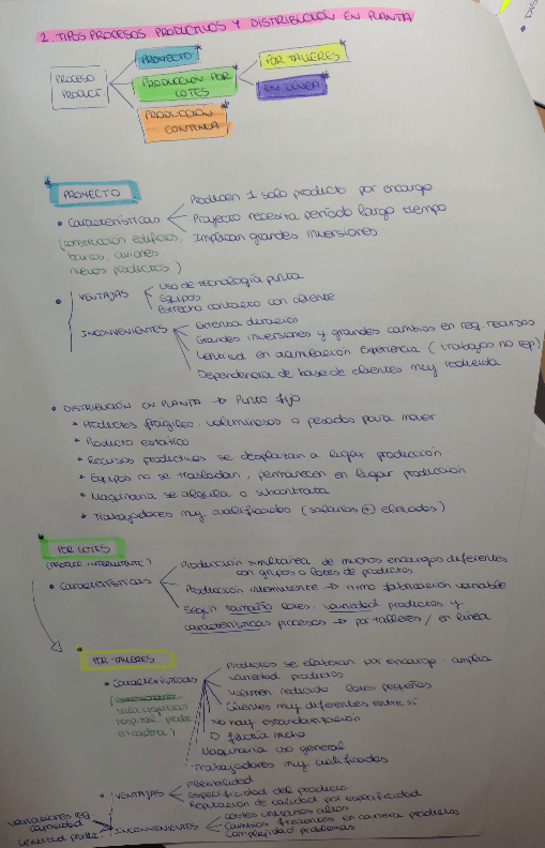 2. TIPOS PROCESOS PRODUCTIVOS Y DISTRIBUCIÓN EN PLANTA
PROCESO PRODUCT.
PROYECTO
PRODUCCIÓN POR LOTES
PRODUCCIÓN CONTINUA
POR TALLERES
EN LÍNEA
PROYECTO
• Características
Producen 1 solo producto por encargo
Proyecto necesita período largo tiempo
Implican grandes inversiones
(construcción edificios,
barcos, aviones,
nuevos productos)
• VENTAJAS
Uso de tecnología punta
Equipos
Estrecho contacto con cliente
INCONVENIENTES
Extensa duración
Grandes inversiones y grandes cambios en req. recursos
Lentitud en acumulación experiencia (trabajos no rep)
Dependencia de base de clientes muy reducida
• DISTRIBUCIÓN EN PLANTA → Punto fijo
* Productos frágiles, voluminosos o pesados para mover
* Producto estático
* Recursos productivos se desplazan a lugar producción
* Equipos no se trasladan, permanecen en lugar producción
* Maquinaria se alquila o subcontrata
* Trabajadores muy cualificados (salarios + elevados)
POR LOTES
INTERMITENTE)
• Características
Producción simultánea de muchos encargos diferentes
con grupos o lotes de productos
Producción intermitente → ritmo fabricación variable
Según tamaño lotes, variedad productos y
características procesos → por talleres / en línea
POR TALLERES
• Características
hospital
Productos se elaboran por encargo. amplia
variedad productos
Volumen reducido. lotes pequeños
Clientes muy diferentes entre sí
No hay estandarización
D fluctúa mucho
Maquinaria uso general
Trabajadores muy cualificados
• VENTAJAS
Flexibilidad
Especificidad del producto
Reputación de calidad por especificidad
variaciones req.
capacidad
Lentitud
INCONVENIENTES
costes unitarios altos
Cambios frecuentes en cartera productos
Complejidad problemas